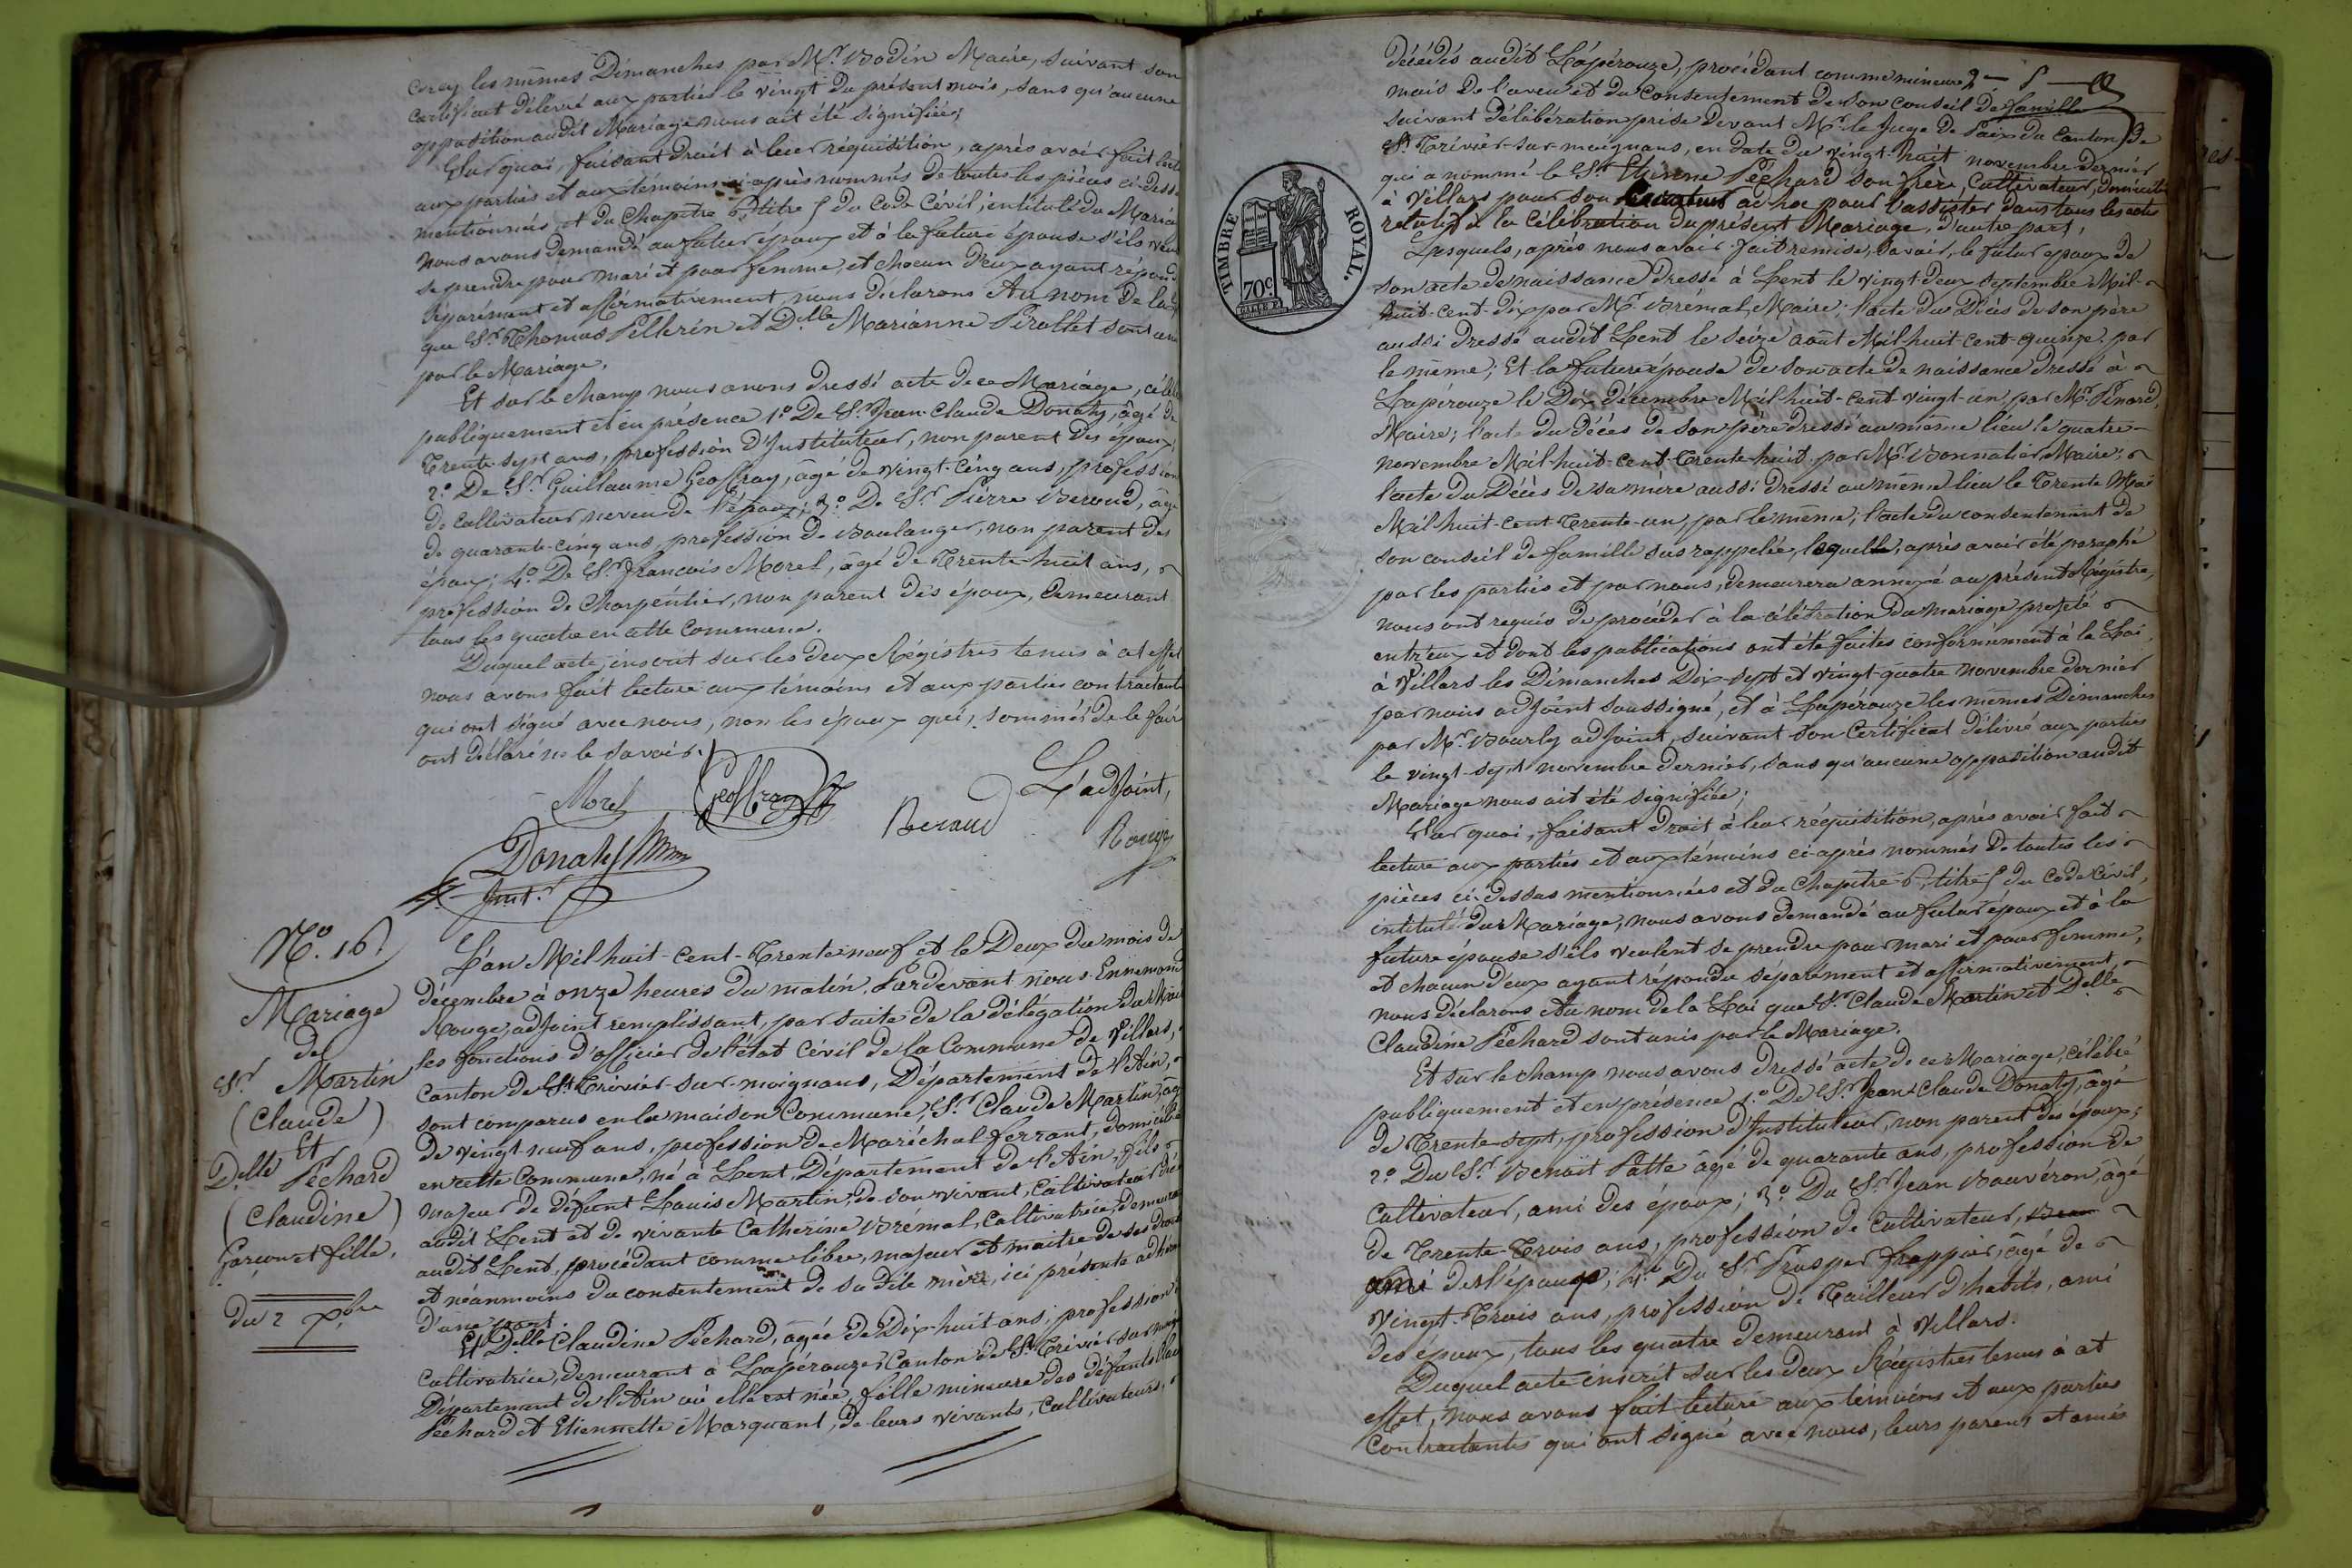 les mêmes Dimanches par Mr. Bodin Maire, suivant son
certificat délivré aux parties le vingt du présent mois, sans qu'aucune
opposition audit Mariage nous ait été signifiée;
Sur quoi, faisant droit à leur réquisition, après avoir fait
aux parties et aux témoins ci-après nommés de toutes les pièces ci-dess
mentionnées et du Chapitre 6, titre 5 du Code Civil, intitulé du Maria
nous avons demandé au futur époux et à la future épouse s'ils veul
se prendre pour mari et pour femme, et chacun d'eux ayant répond
séparément et affirmativement, nous déclarons Au nom de la
que Sr. Thomas Pellerin et Delle Marianne Pirollet sont un
par le Mariage.
Et sur le champ nous avons dressé acte de ce Mariage, célé
publiquement et en présence 1° De Sr. Jean-Claude Donaty, âgé de
Trente-sept ans, profession d'Instituteur, non parent des époux;
2° De Sr. Guillaume Geoffray, âgé de vingt-cinq ans, profession
de cultivateur, neveu de l'époux; 3° De Sr. Pierre Beroud, âgé
de quarante-cinq ans, profession de Boulanger, non parent des
époux; 4° De Sr. François Morel, âgé de Trente-huit ans,
profession de Charpentier, non parent des époux, demeurant
tous les quatre en cette Commune.
Duquel acte, inscrit sur les deux Régistres tenus à cet effet
nous avons fait lecture aux témoins et aux parties contractant
qui ont signé avec nous, non les époux qui, sommés de le faire
ont déclaré ne le savoir.
Morel Geoffray Beroud L'adjoint,
Donaty Rouge
Instr.
N°. 16.
Mariage
de
Sr. Martin
(Claude)
Et
Delle Péchard
(Claudine)
Garçon et fille.
Du 2 Xbre
L'an Mil huit-cent-Trente-neuf et le Deux du mois de
décembre à onze heures du matin. Pardevant nous Ennemond
Rouge, adjoint remplissant, par suite de la délégation du Mai
les fonctions d'officier de l'état civil de la Commune de Villars,
Canton de St. Trivier-sur-moignans, Département de l'Ain,
sont comparus en la maison Commune, Sr. Claude Martin, âg
de vingt-neuf ans, profession de Maréchal ferrant, domicilié
en cette Commune, né à Lent, Département de l'Ain, fils
majeur de défunt Louis Martin, de son vivant, Cultivateur
audit Lent et de vivante Catherine Brémal, Cultivatrice, demeura
audit Lent, procédant comme libre, majeur et maître de ses droi
et néanmoins du consentement de sa dite mère, ici présente
d'une part.
Et Delle Claudine Péchard, âgée de Dix-huit ans, profession
Cultivatrice, demeurant à Lapérouze, Canton de St. Trivier-sur-moig
Département de l'Ain où elle est née, fille mineure des défunts
Péchard et Etiennette Marquant, de leurs vivants, Cultivateurs,
décédés audit Lapérouze, procédant comme mineure,
mais de l'aveu et du consentement de son Conseil de famille
suivant délibération prise devant Mr. le Juge de Paix du Canton de
St. Trivier-sur-moignans, en date du vingt-huit novembre dernier
qui a nommé le Sr. Etienne Péchard son frère, Cultivateur, domicilié
à Villars pour son Curateur ad hoc pour l'assister dans tous les actes
relatifs à la Célébration du présent Mariage, d'autre part,
Lesquels, après nous avoir fait remise, savoir, le futur époux de
son acte de naissance dressé à Lent le vingt-deux septembre Mil-
huit-cent-dix par Mr. Brémal, Maire; l'acte du Décès de son père
aussi dressé audit Lent le seize août Mil huit-cent-quinze par
le même; Et la future épouse de son acte de naissance dressé à
Lapérouze le Dix décembre Mil huit-cent-vingt-un par Mr. Penard,
Maire; l'acte du décès de son père dressé au même lieu le quatre
novembre Mil-huit-cent-Trente-huit par Mr. Bonnatier Maire;
l'acte du Décès de sa mère aussi dressé au même lieu le Trente Mai
Mil huit-cent-Trente-un, par le même; l'acte du consentement de
son conseil de famille sus rappelée, laquelle, après avoir été paraphé
par les parties et par nous, demeurera annexé au présent Régistre,
nous ont requis de procéder à la célébration du mariage projeté
entr'eux et dont les publications ont été faites conformément à la Loi,
à Villars les Dimanches Dix-sept et vingt-quatre novembre dernier
par nous adjoint soussigné, et à Lapérouze les mêmes Dimanches
par Mr. Bourly adjoint, suivant son Certificat délivré aux parties
le vingt-sept novembre dernier, sans qu'aucune opposition audit
Mariage nous ait été signifiée;
Sur quoi, faisant droit à leur réquisition, après avoir fait
lecture aux parties et aux témoins ci-après nommés de toutes les
pièces ci-dessus mentionnées et du Chapitre 6, titre 5 du Code Civil,
intitulé du Mariage, nous avons demandé au futur époux et à la
future épouse s'ils veulent se prendre pour mari et pour femme,
et chacun d'eux ayant répondu séparément et affirmativement,
nous déclarons Au nom de la Loi que Sr. Claude Martin et Delle
Claudine Péchard sont unis par le Mariage.
Et sur le champ nous avons dressé acte de ce Mariage, célébré
publiquement et en présence 1° De Sr. Jean-Claude Donaty, âgé
de Trente-sept, profession d'Instituteur, non parent des époux;
2° Du Sr. Benoît Patte âgé de quarante ans, profession de
Cultivateur, ami des époux; 3° Du Sr. Jean Bouveron, âgé
de Trente-Trois ans, profession de Cultivateur,
ami de l'époux; 4° Du Sr. Prosper Frappier, âgé de
vingt-Trois ans, profession de Tailleur d'habits, ami
des époux, tous les quatre demeurant à Villars.
Duquel acte inscrit sur les deux Régistres tenus à cet
effet, nous avons fait lecture aux témoins et aux parties
Contractantes qui ont signé avec nous, leurs parens et amis
TIMBRE ROYAL.
70c